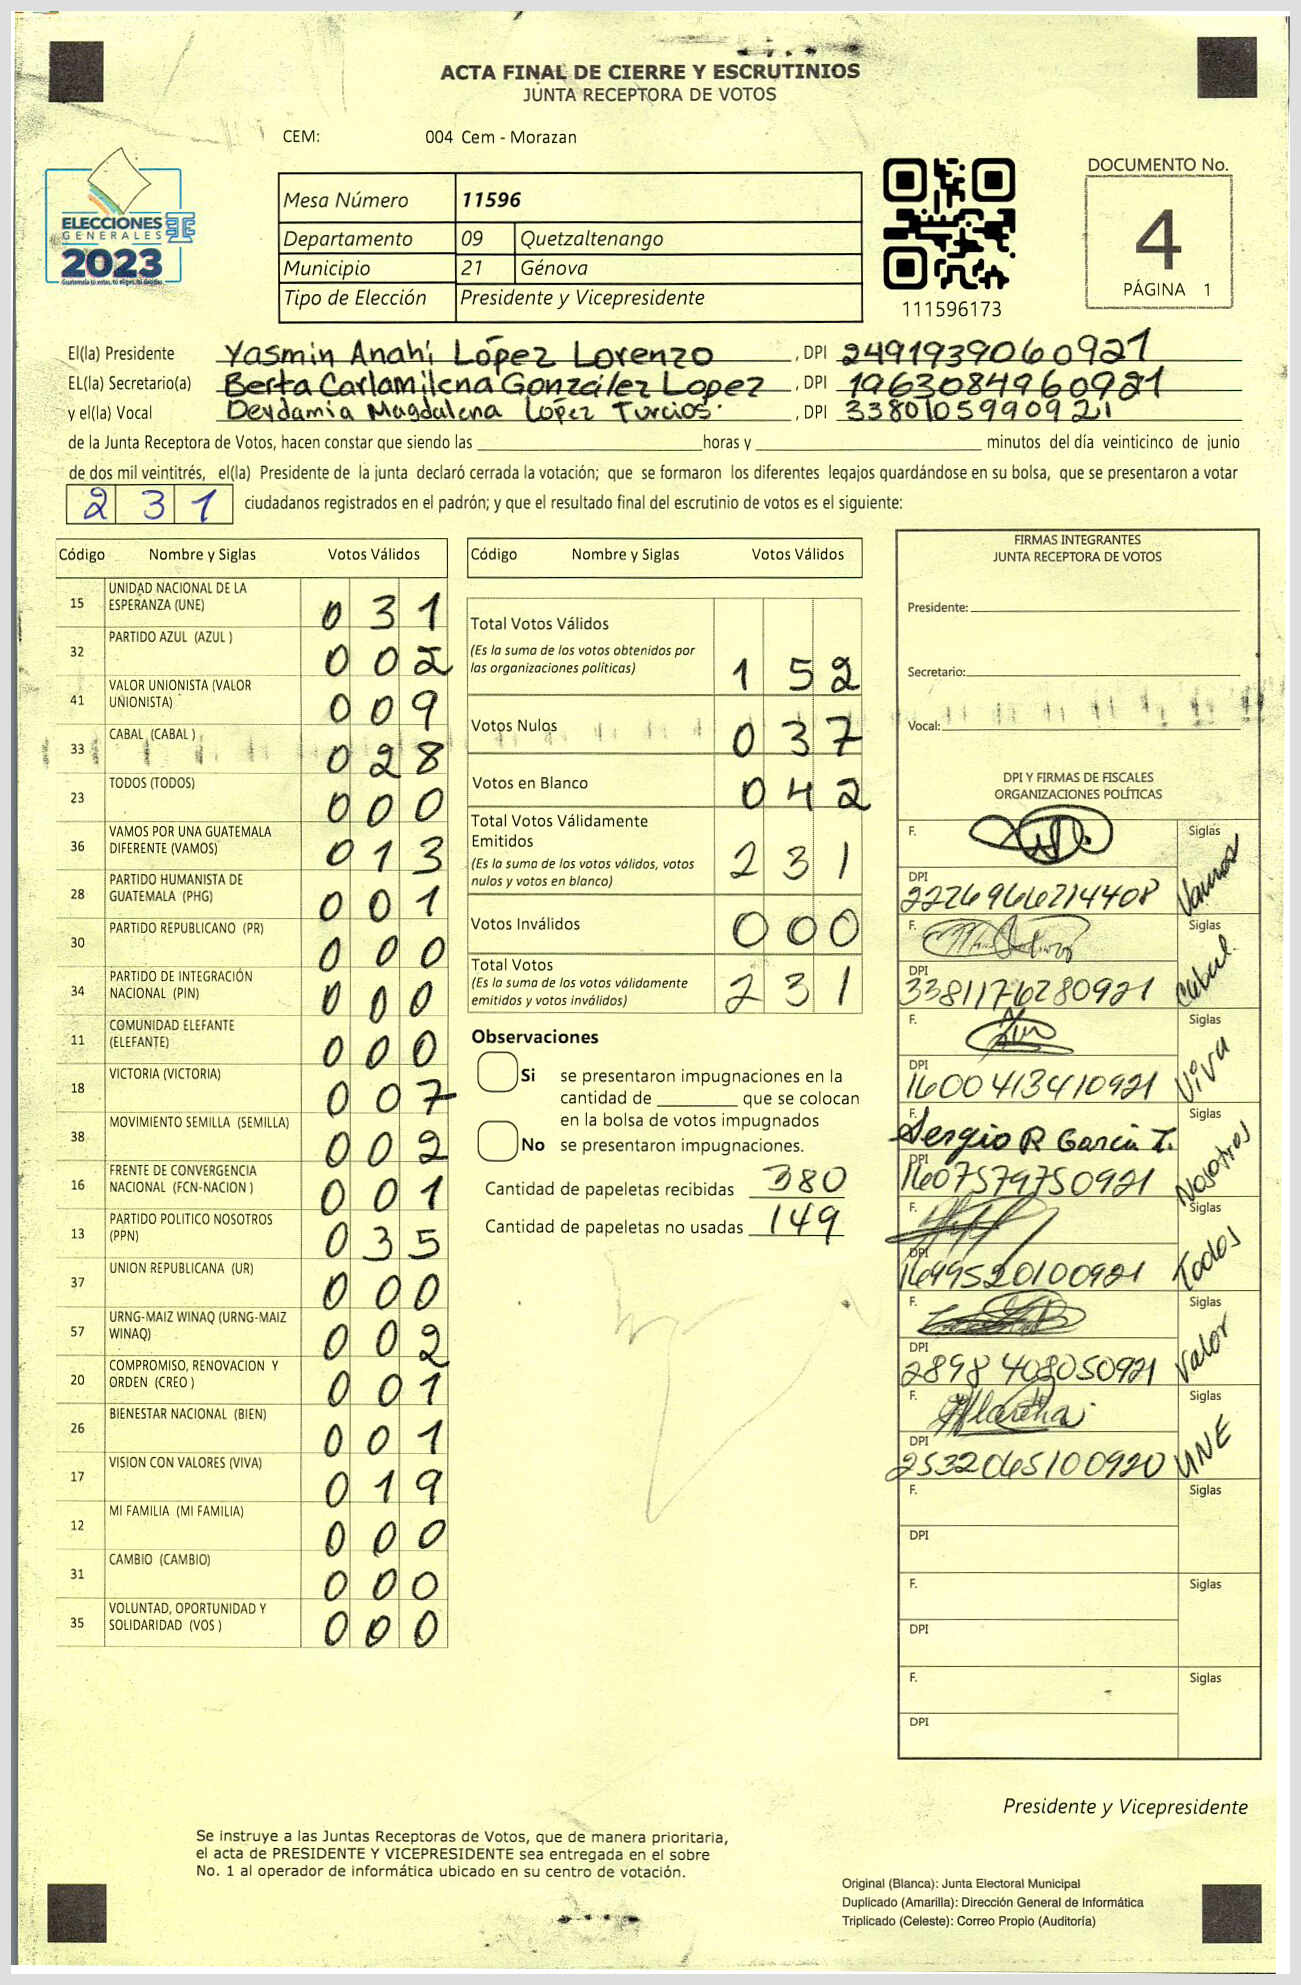 ACTA FINAL DE CIERRE Y ESCRUTINIOS
JUNTA RECEPTORA DE VOTOS
CEM: 004 Cem - Morazan
ELECCIONES
GENERALES
2023
Mesa Número 11596
Departamento 09 Quetzaltenango
Municipio 21 Génova
Tipo de Elección Presidente y Vicepresidente
111596173
DOCUMENTO No.
4
PÁGINA 1
El(la) Presidente Yasmin Anahí López Lorenzo, DPI 2491939060921
EL(la) Secretario(a) Berta Carlamilena González Lopez, DPI 1963084960921
y el(la) Vocal Deydamia Magdalena López Turcios., DPI 3380105990921
de la Junta Receptora de Votos, hacen constar que siendo las horas y minutos del día veinticinco de junio
de dos mil veintitrés, el(la) Presidente de la junta declaró cerrada la votación; que se formaron los diferentes legajos quardándose en su bolsa, que se presentaron a votar
231 ciudadanos registrados en el padrón; y que el resultado final del escrutinio de votos es el siguiente:
Código Nombre y Siglas Votos Válidos
15 UNIDAD NACIONAL DE LA ESPERANZA (UNE) 031
32 PARTIDO AZUL (AZUL ) 002
41 VALOR UNIONISTA (VALOR UNIONISTA) 009
33 CABAL (CABAL ) 028
23 TODOS (TODOS) 000
36 VAMOS POR UNA GUATEMALA DIFERENTE (VAMOS) 013
28 PARTIDO HUMANISTA DE GUATEMALA (PHG) 001
30 PARTIDO REPUBLICANO (PR) 000
34 PARTIDO DE INTEGRACIÓN NACIONAL (PIN) 000
11 COMUNIDAD ELEFANTE (ELEFANTE) 000
18 VICTORIA (VICTORIA) 007
38 MOVIMIENTO SEMILLA (SEMILLA) 002
16 FRENTE DE CONVERGENCIA NACIONAL (FCN-NACION ) 001
13 PARTIDO POLITICO NOSOTROS (PPN) 035
37 UNION REPUBLICANA (UR) 000
57 URNG-MAIZ WINAQ (URNG-MAIZ WINAQ) 002
20 COMPROMISO, RENOVACION Y ORDEN (CREO ) 001
26 BIENESTAR NACIONAL (BIEN) 001
17 VISION CON VALORES (VIVA) 019
12 MI FAMILIA (MI FAMILIA) 000
31 CAMBIO (CAMBIO) 000
35 VOLUNTAD, OPORTUNIDAD Y SOLIDARIDAD (VOS ) 000
Código Nombre y Siglas Votos Válidos
Total Votos Válidos 152
(Es la suma de los votos obtenidos por
las organizaciones políticas)
Votos Nulos 037
Votos en Blanco 042
Total Votos Válidamente
Emitidos 231
(Es la suma de los votos válidos, votos
nulos y votos en blanco)
Votos Inválidos 000
Total Votos 231
(Es la suma de los votos válidamente
emitidos y votos inválidos)
Observaciones
Si se presentaron impugnaciones en la
cantidad de que se colocan
en la bolsa de votos impugnados
No se presentaron impugnaciones.
Cantidad de papeletas recibidas 380
Cantidad de papeletas no usadas 149
FIRMAS INTEGRANTES
JUNTA RECEPTORA DE VOTOS
Presidente:
Secretario:
Vocal:
DPI Y FIRMAS DE FISCALES
ORGANIZACIONES POLÍTICAS
F. Siglas Vamos
DPI 2226966214408
F. Siglas Cabal.
DPI 3381176280921
F. Siglas Viva
DPI 1600413410921
F. Sergio R Garcia I. Siglas Nosotros
DPI 1607579750921
F. Siglas Todos
DPI 1649520100921
F. Siglas Valor
DPI 2898408050921
F. Siglas UNE
DPI 2532065100920
F. Siglas
DPI
F. Siglas
DPI
F. Siglas
DPI
Presidente y Vicepresidente
Se instruye a las Juntas Receptoras de Votos, que de manera prioritaria,
el acta de PRESIDENTE Y VICEPRESIDENTE sea entregada en el sobre
No. 1 al operador de informática ubicado en su centro de votación.
Original (Blanca): Junta Electoral Municipal
Duplicado (Amarilla): Dirección General de Informática
Triplicado (Celeste): Correo Propio (Auditoría)